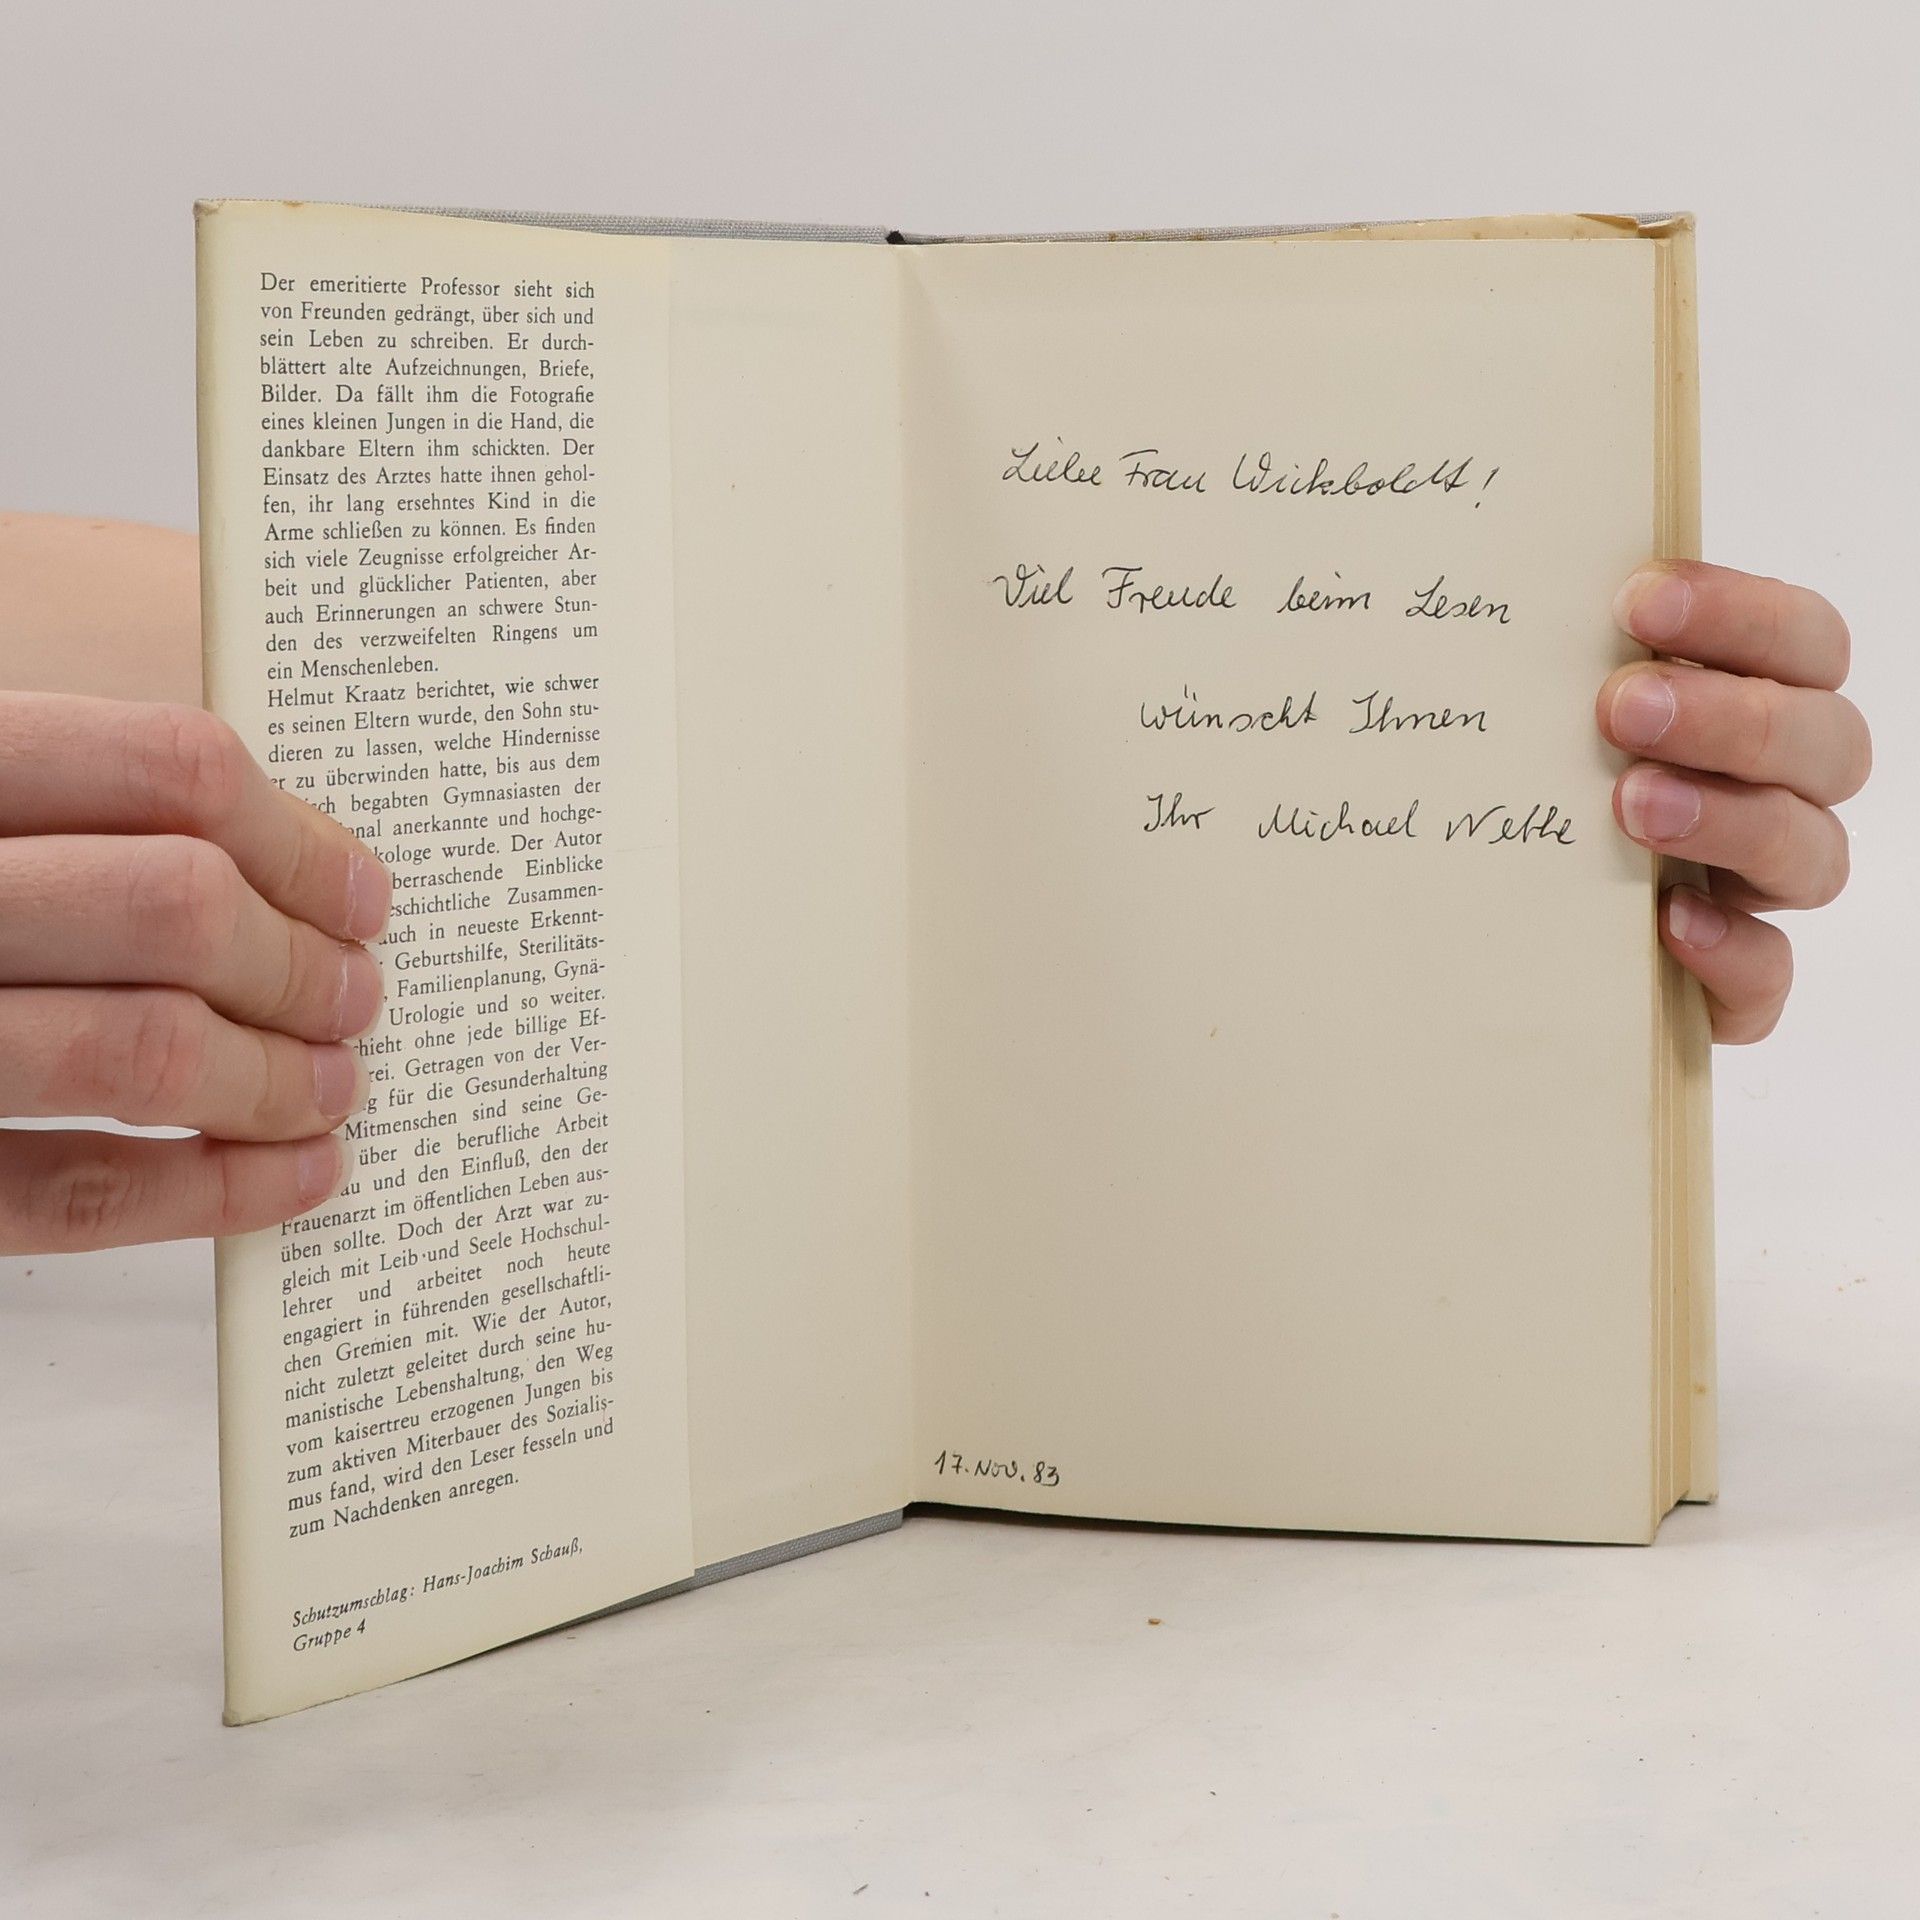 Der emeritierte Professor sieht sich
von Freunden gedrängt, über sich und
sein Leben zu schreiben. Er durch-
blättert alte Aufzeichnungen, Briefe,
Bilder. Da fällt ihm die Fotografie
eines kleinen Jungen in die Hand, die
dankbare Eltern ihm schickten. Der
Einsatz des Arztes hatte ihnen gehol-
fen, ihr lang ersehntes Kind in die
Arme schließen zu können. Es finden
sich viele Zeugnisse erfolgreicher Ar-
beit und glücklicher Patienten, aber
auch Erinnerungen an schwere Stun-
den des verzweifelten Ringens um
ein Menschenleben.
Helmut Kraatz berichtet, wie schwer
es seinen Eltern wurde, den Sohn stu-
dieren zu lassen, welche Hindernisse
er zu überwinden hatte, bis aus dem
begabten Gymnasiasten der
anerkannte und hochge-
wurde. Der Autor
Einblicke
Zusammen-
auch in neueste Erkennt-
Geburtshilfe, Sterilitäts-
, Familienplanung, Gynä-
Urologie und so weiter.
ohne jede billige Ef-
Getragen von der Ver-
für die Gesunderhaltung
Mitmenschen sind seine Ge-
über die berufliche Arbeit
und den Einfluß, den der
Frauenarzt im öffentlichen Leben aus-
üben sollte. Doch der Arzt war zu-
gleich mit Leib und Seele Hochschul-
lehrer und arbeitet noch heute
engagiert in führenden gesellschaftli-
chen Gremien mit. Wie der Autor,
nicht zuletzt geleitet durch seine hu-
manistische Lebenshaltung, den Weg
vom kaisertreu erzogenen Jungen bis
zum aktiven Miterbauer des Sozialis-
mus fand, wird den Leser fesseln und
zum Nachdenken anregen.
Schutzumschlag: Hans-Joachim Schauß,
Gruppe 4
Liebe Frau Wickboldt!
Viel Freude beim Lesen
wünscht Ihnen
Ihr Michael
17. Nov. 83